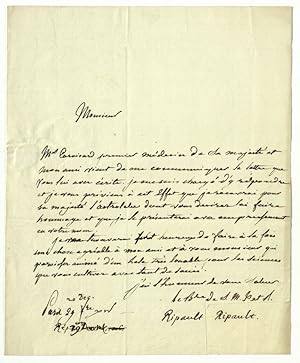 Monsieur
Mr Corvisart premier médecin de Sa majesté et
mon ami vient de me communiquer la lettre que
vous lui avez écrite, je me suis chargé d'y répondre
et je vous préviens à cet Effet que je recevrai pour
Sa majesté l'astrolabe dont vous desirez lui faire
hommage et que je le présenterai avec empressement
en votre nom.
je me trouverai fort heureux de faire à la fois
une chose agréable à mon ami et à vous monsieur qui
animé d'un zele très louable pour les sciences
que vous cultivez avec tant de succès.
j'ai l'honneur de vous Saluer
le Bre de S. M. I. et R.
Paris 29
Ripault Ripault.